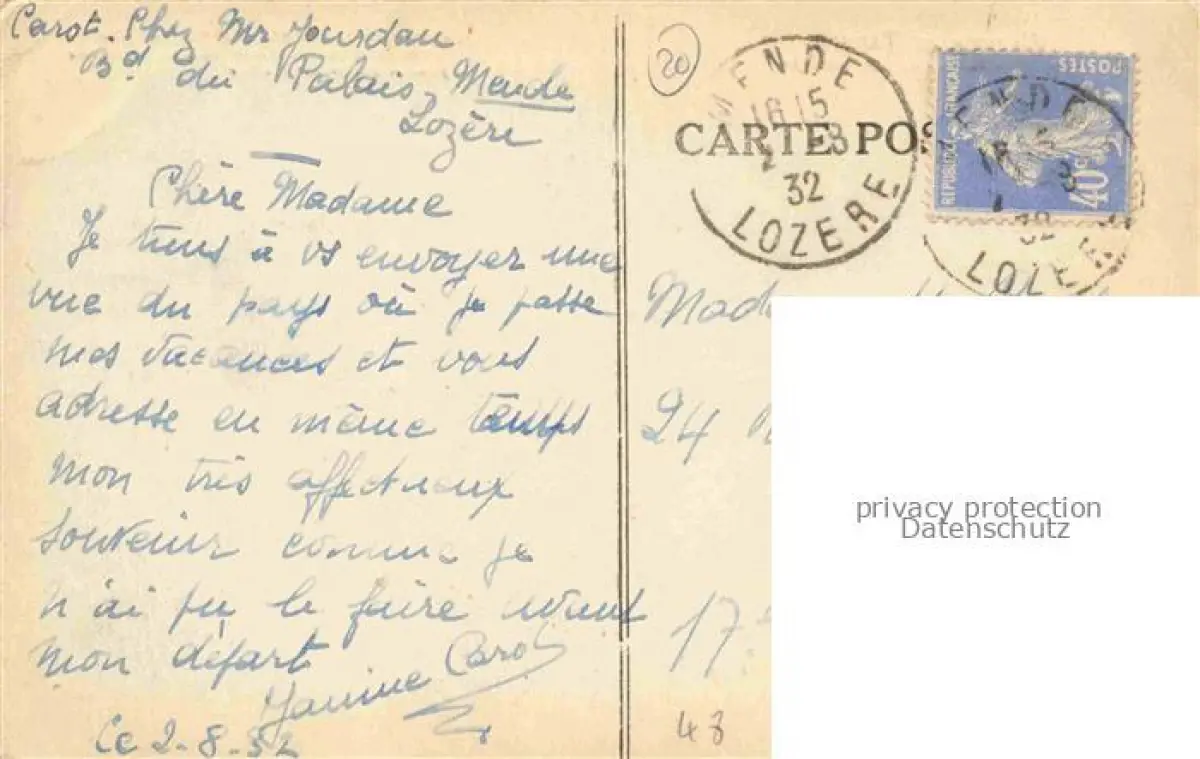 Carot. Chez Mr Jourdan
Bd du Palais, Mende
Lozère
Chère Madame
Je tiens à vs envoyer une
vue du pays où je passe
mes vacances et vous
adresse en même temps
mon très affectueux
souvenir comme je
n'ai pu le faire avant
mon départ
Janine Carot
Le 2-8-32
20
MENDE
16 15
2 -8
32
LOZERE
CARTE POS
RÉPUBLIQUE FRANÇAISE
POSTES
40c
MENDE
LOZERE
Mad
24
17
48
privacy protection
Datenschutz